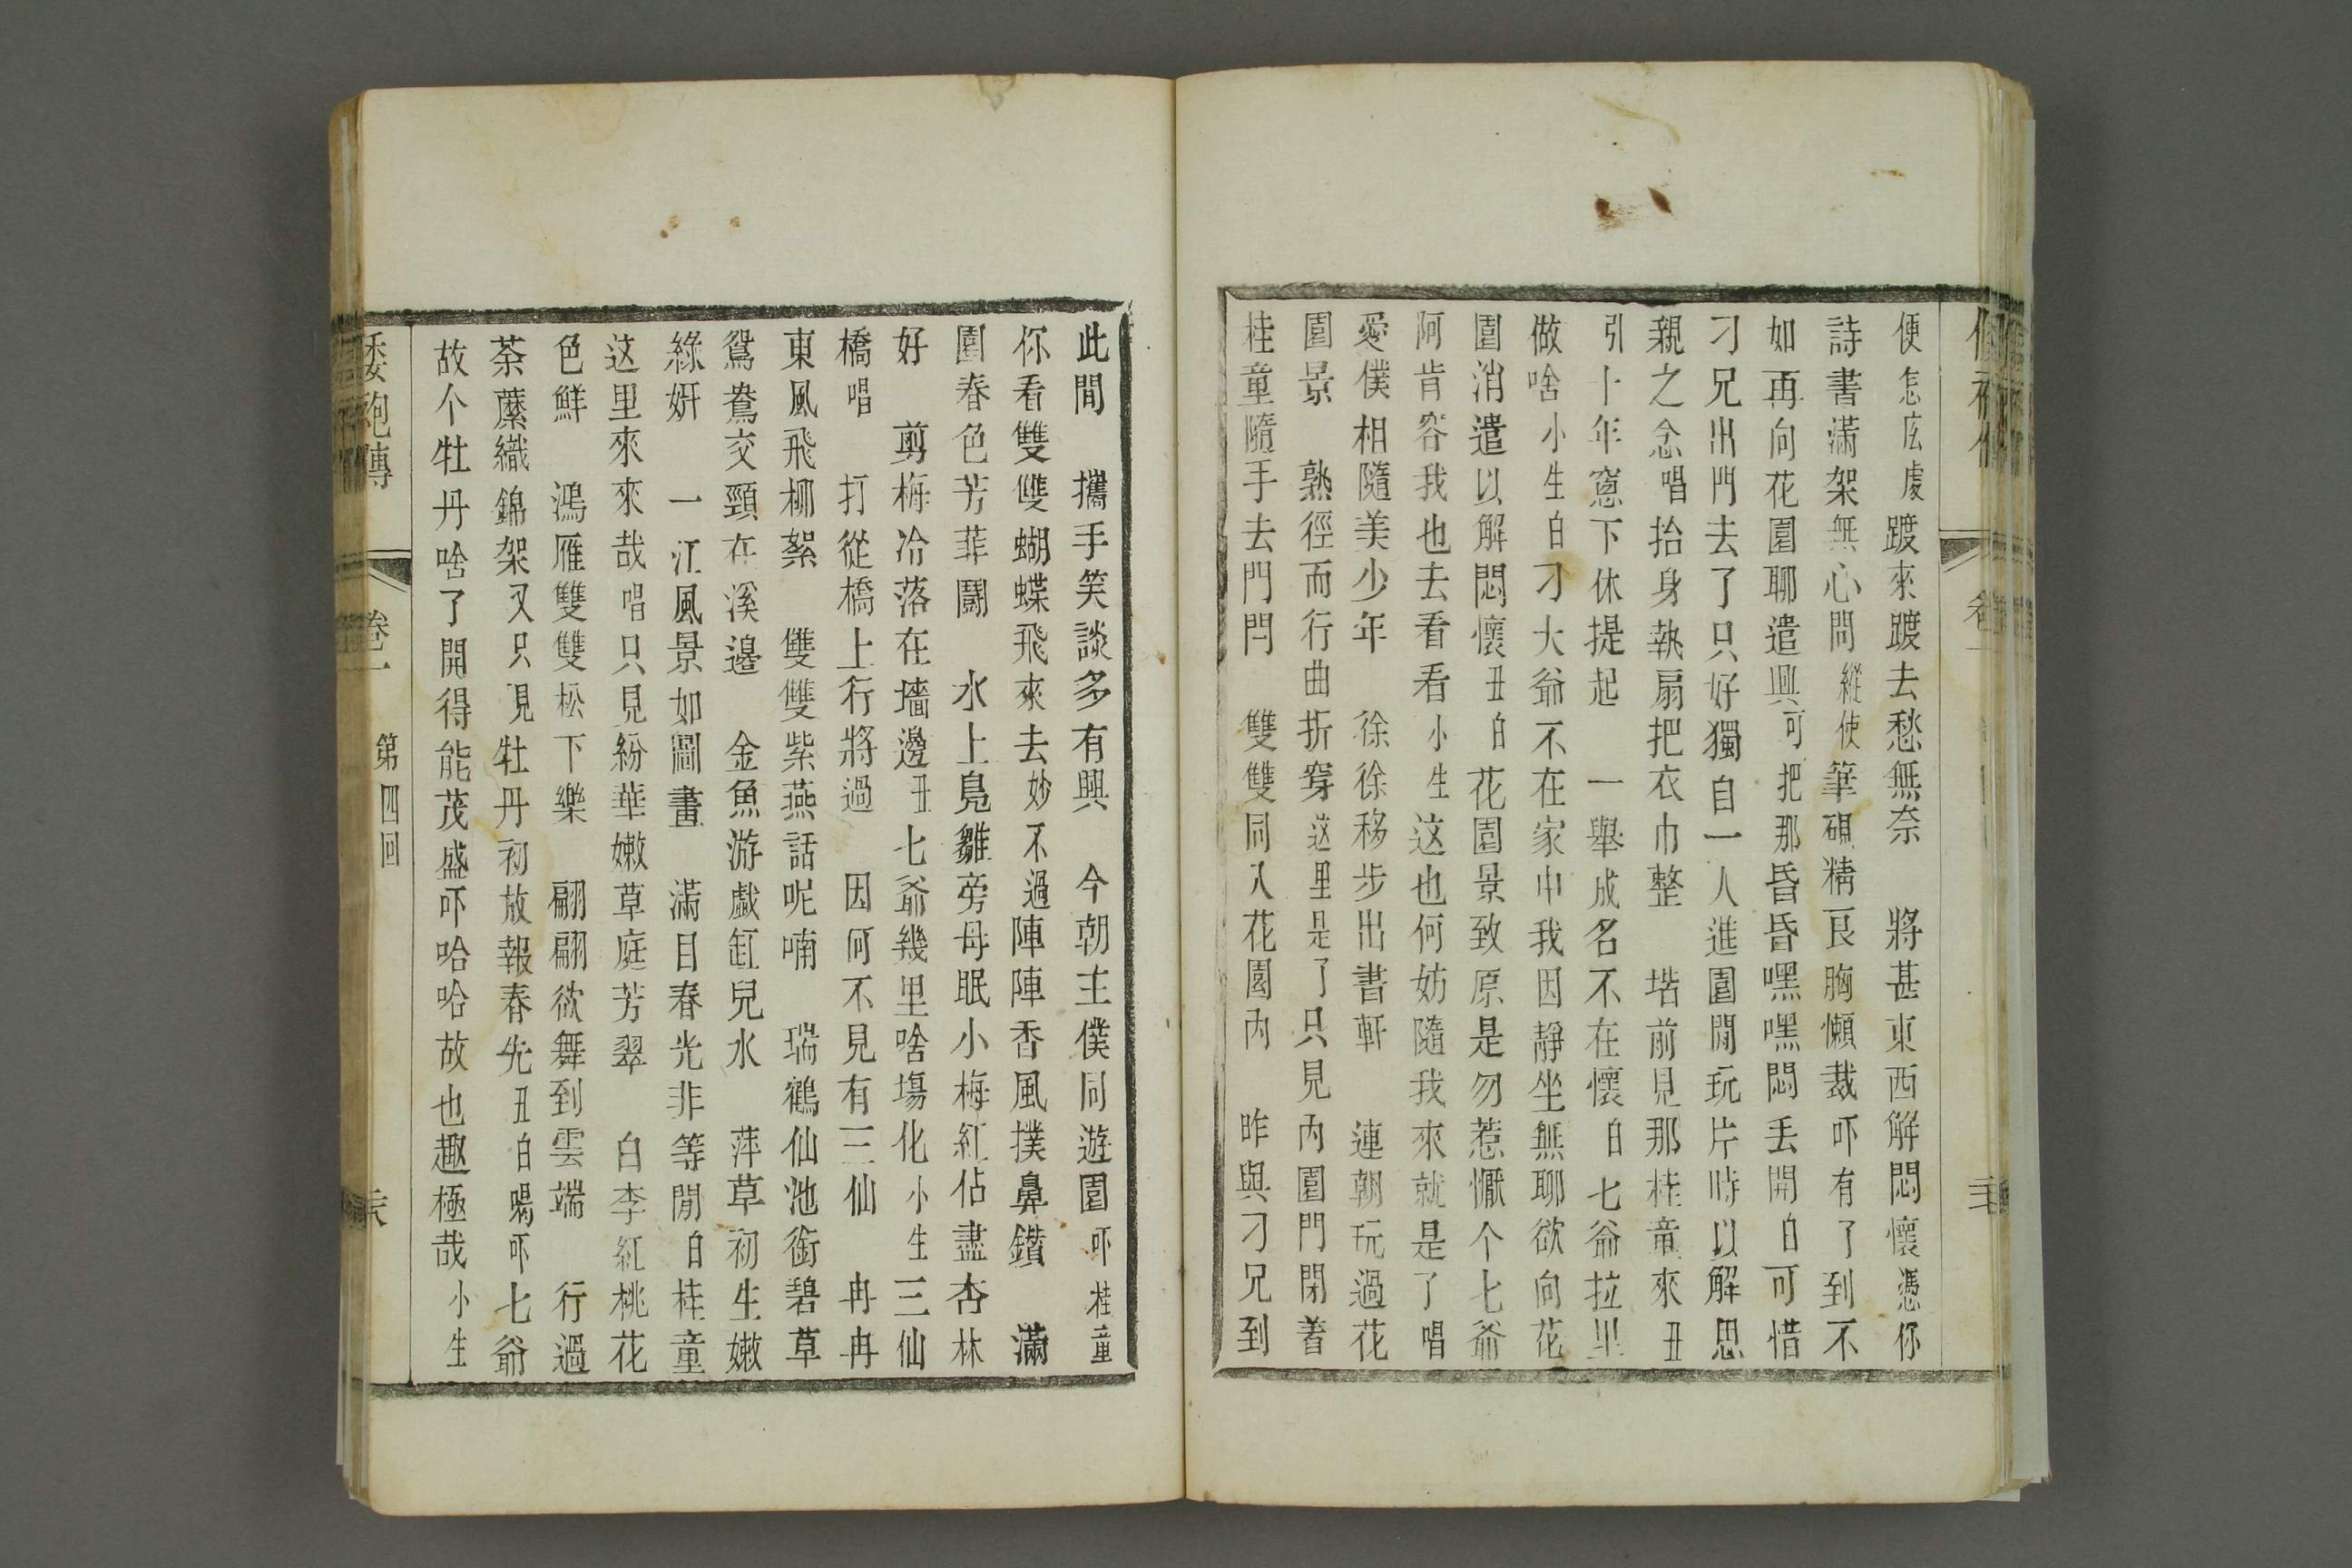 便怎庅處踱來踱去愁無奈　將甚東西解悶懷憑你
詩書滿架無心問縱使筆硯精良胸懶裁吓有了到不
如再向花園聊遣興可把那昏昏嘿嘿悶丟開白可惜
刁兄出門去了只好獨自一人進園閒玩片時以解思
親之念唱抬身執扇把衣巾整　堦前見那桂童來丑
引十年窻下休提起　一舉成名不在懷白七爺拉里
做啥小生白刁大爺不在家中我因靜坐無聊欲向花
園消遣以解悶懷丑白花園景致原是勿惹懨个七爺
阿肯容我也去看看小生这也何妨隨我來就是了唱
愛僕相隨美少年　徐徐移步出書軒　連朝玩過花
園景　熟徑而行曲折穿这里是了只見內園門閉着
桂童隨手去門閂　雙雙同入花園內　昨與刁兄到
此間　攜手笑談多有興　今朝主僕同遊園吓桂童
你看雙雙蝴蝶飛來去妙不過陣陣香風撲鼻鑽　滿
園春色芳菲鬪　水上鳧雛旁母眠小梅紅佔盡杏林
好　剪梅冷落在墻邊丑七爺幾里啥塲化小生三仙
橋唱　打從橋上行將過　因何不見有三仙　冉冉
東風飛柳絮　雙雙紫燕話呢喃　瑞鶴仙池銜碧草
鴛鴦交頸在溪邊　金魚游戲缸兒水　萍草初生嫩
綠妍　一江風景如圖畫　滿目春光非等閒白桂童
这里來來哉唱只見紛華嫩草庭芳翠　白李紅桃花
色鮮　鴻雁雙雙松下樂　翩翩欲舞到雲端　行過
荼蘼織錦架又只見牡丹初放報春先丑白喝吓七爺
故个牡丹啥了開得能茂盛吓哈哈故也趣極哉小生
倭袍傳　卷一　第四回　六